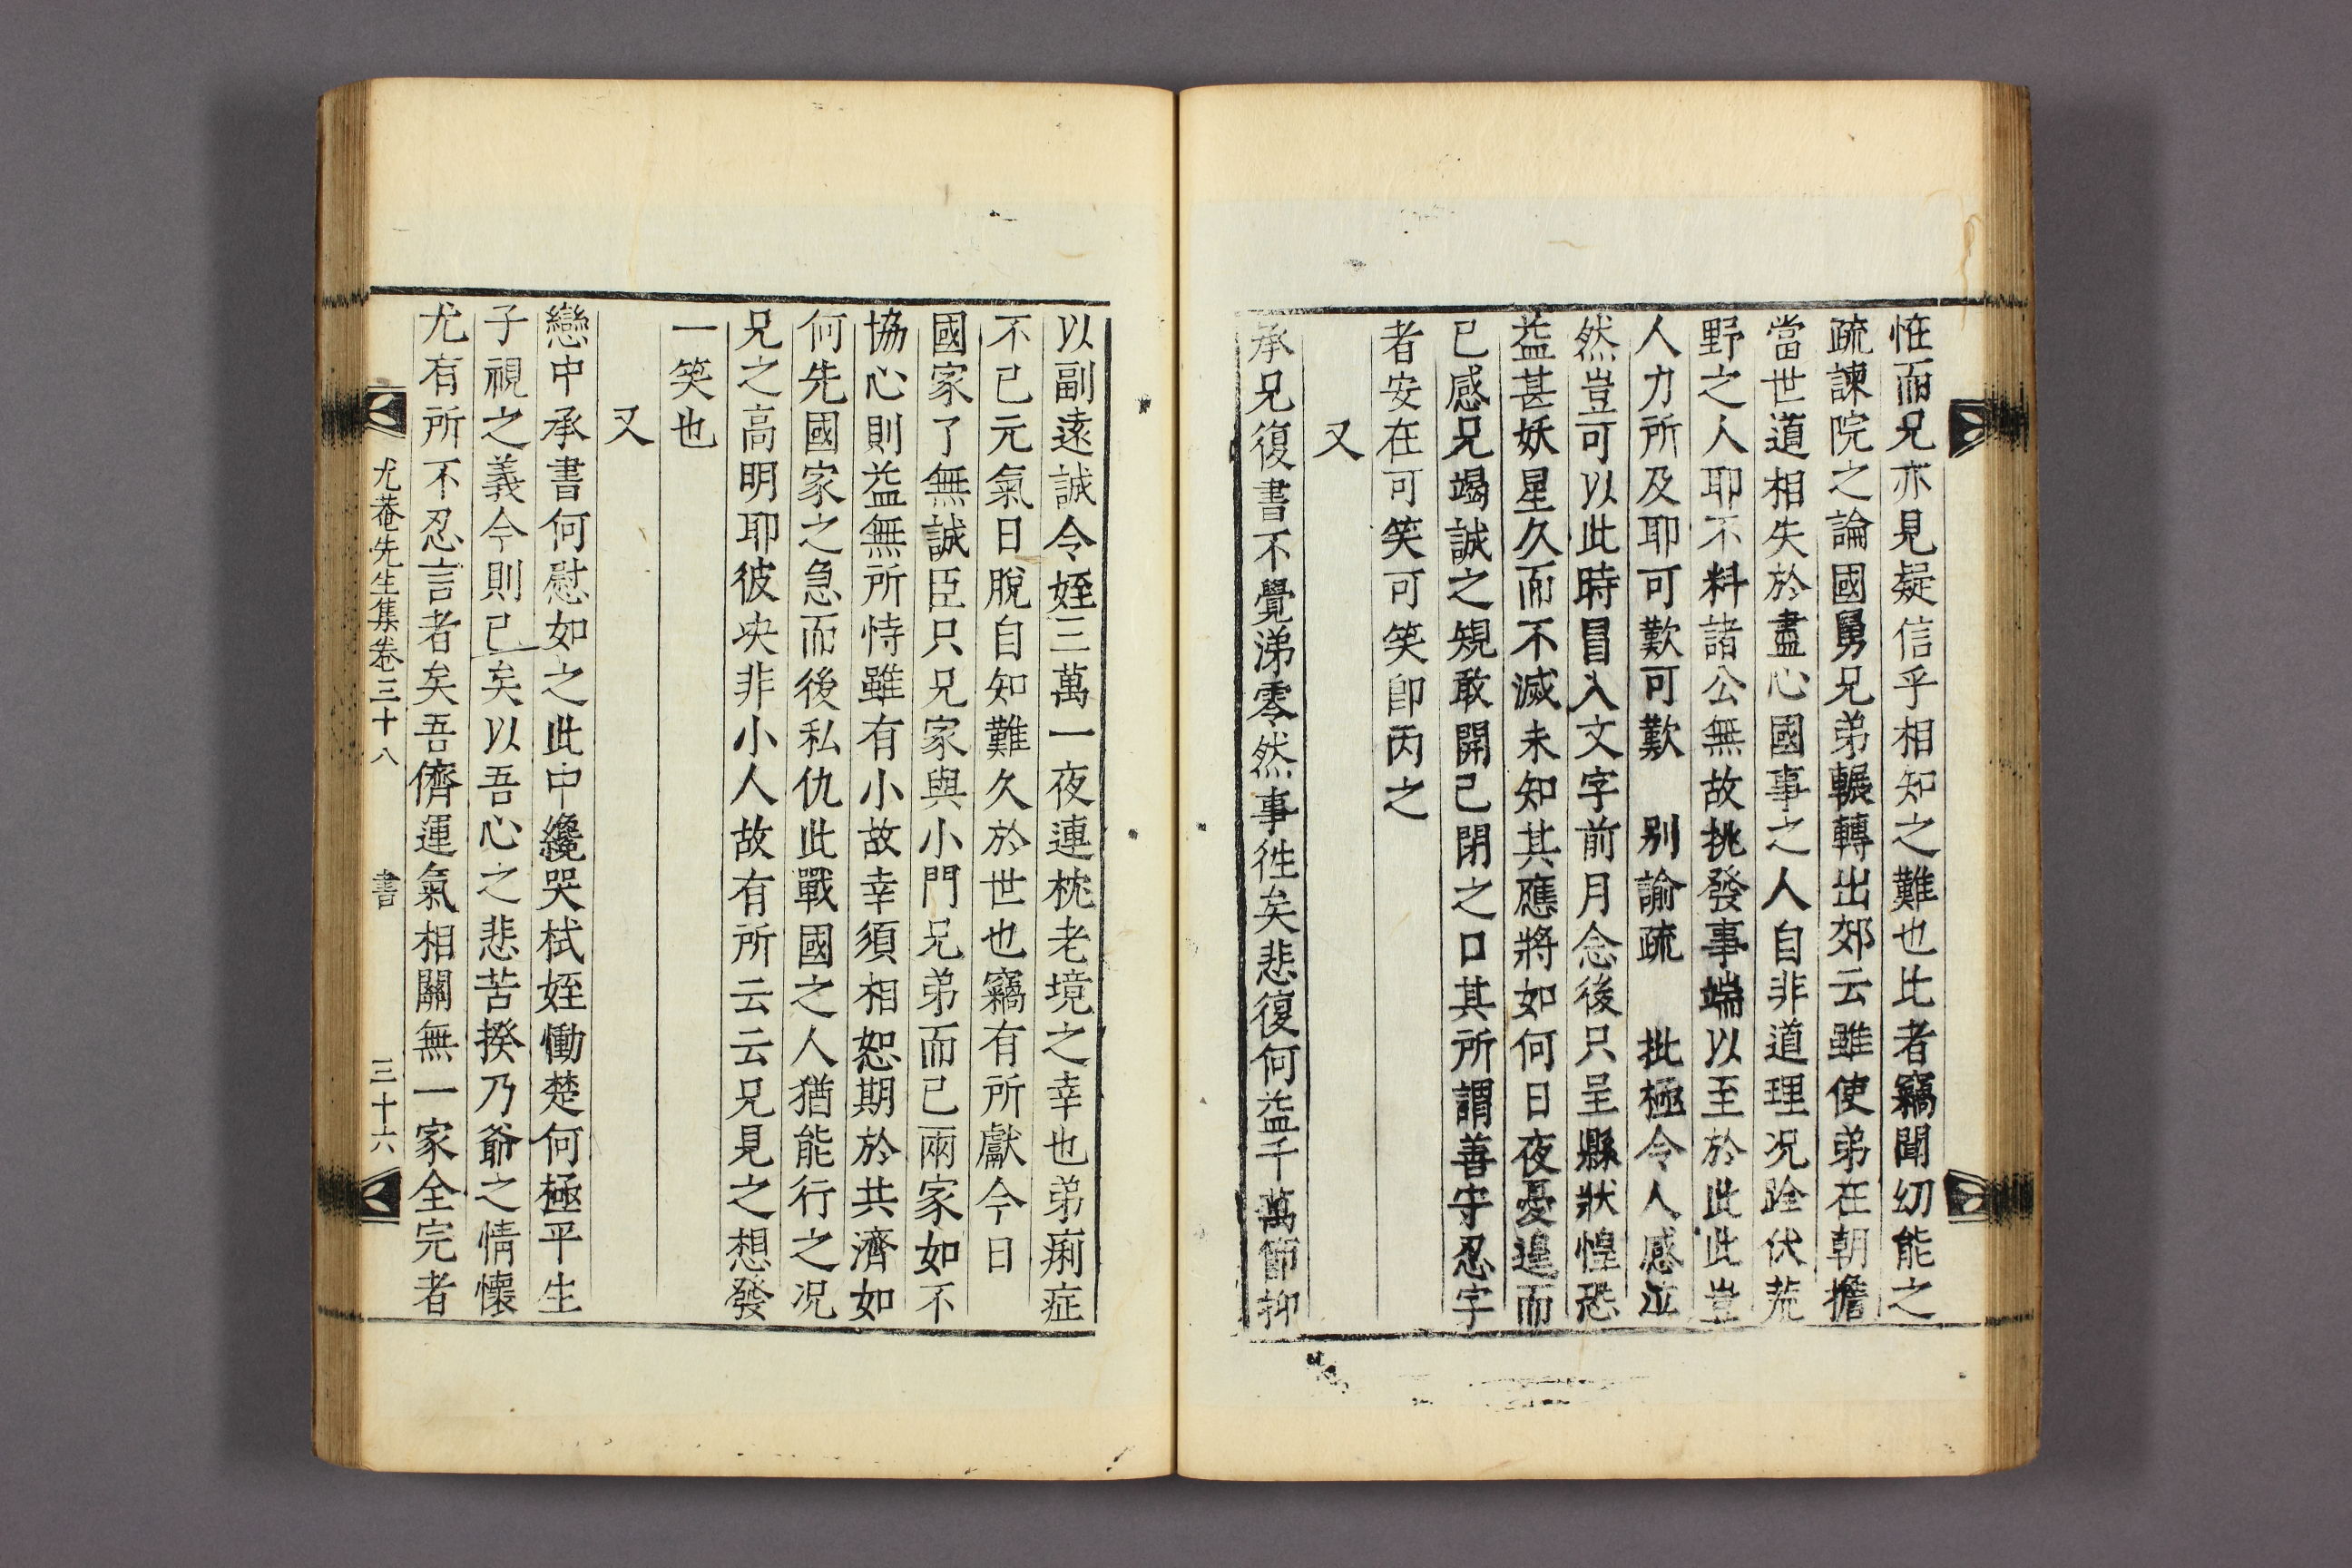 恠而兄亦見疑信乎相知之難也比者竊聞㓜能之
疏諫院之論國舅兄弟輾轉出郊云雖使弟在朝擔
當世道相失於盡心國事之人自非道理况跧伏荒
野之人耶不料諸公無故挑發事端以至於此此豈
人力所及耶可歎可歎 别諭疏 批極令人感泣
然豈可以此時冒入文字前月念後只呈縣狀惶恐
益甚妖星久而不滅未知其應將如何日夜憂遑而
已感兄竭誠之䂓敢開已閉之口其所謂善守忍字
者安在可笑可笑卽丙之
又
承兄復書不覺涕零然事徃矣悲復何益千萬節抑
以副遠誠令姪三萬一夜連枕老境之幸也弟痢症
不已元氣日脫自知難久於世也竊有所獻今日
國家了無誠臣只兄家與小門兄弟而已兩家如不
協心則益無所恃雖有小故幸須相恕期於共濟如
何先國家之急而後私仇此戰國之人猶能行之况
兄之高明耶彼央非小人故有所云云兄見之想發
一笑也
又
戀中承書何慰如之此中纔哭栻姪慟楚何極平生
子視之義今則已矣以吾心之悲苦揆乃爺之情懷
尤有所不忍言者矣吾儕運氣相關無一家全完者
尤菴先生集卷三十八 書 三十六